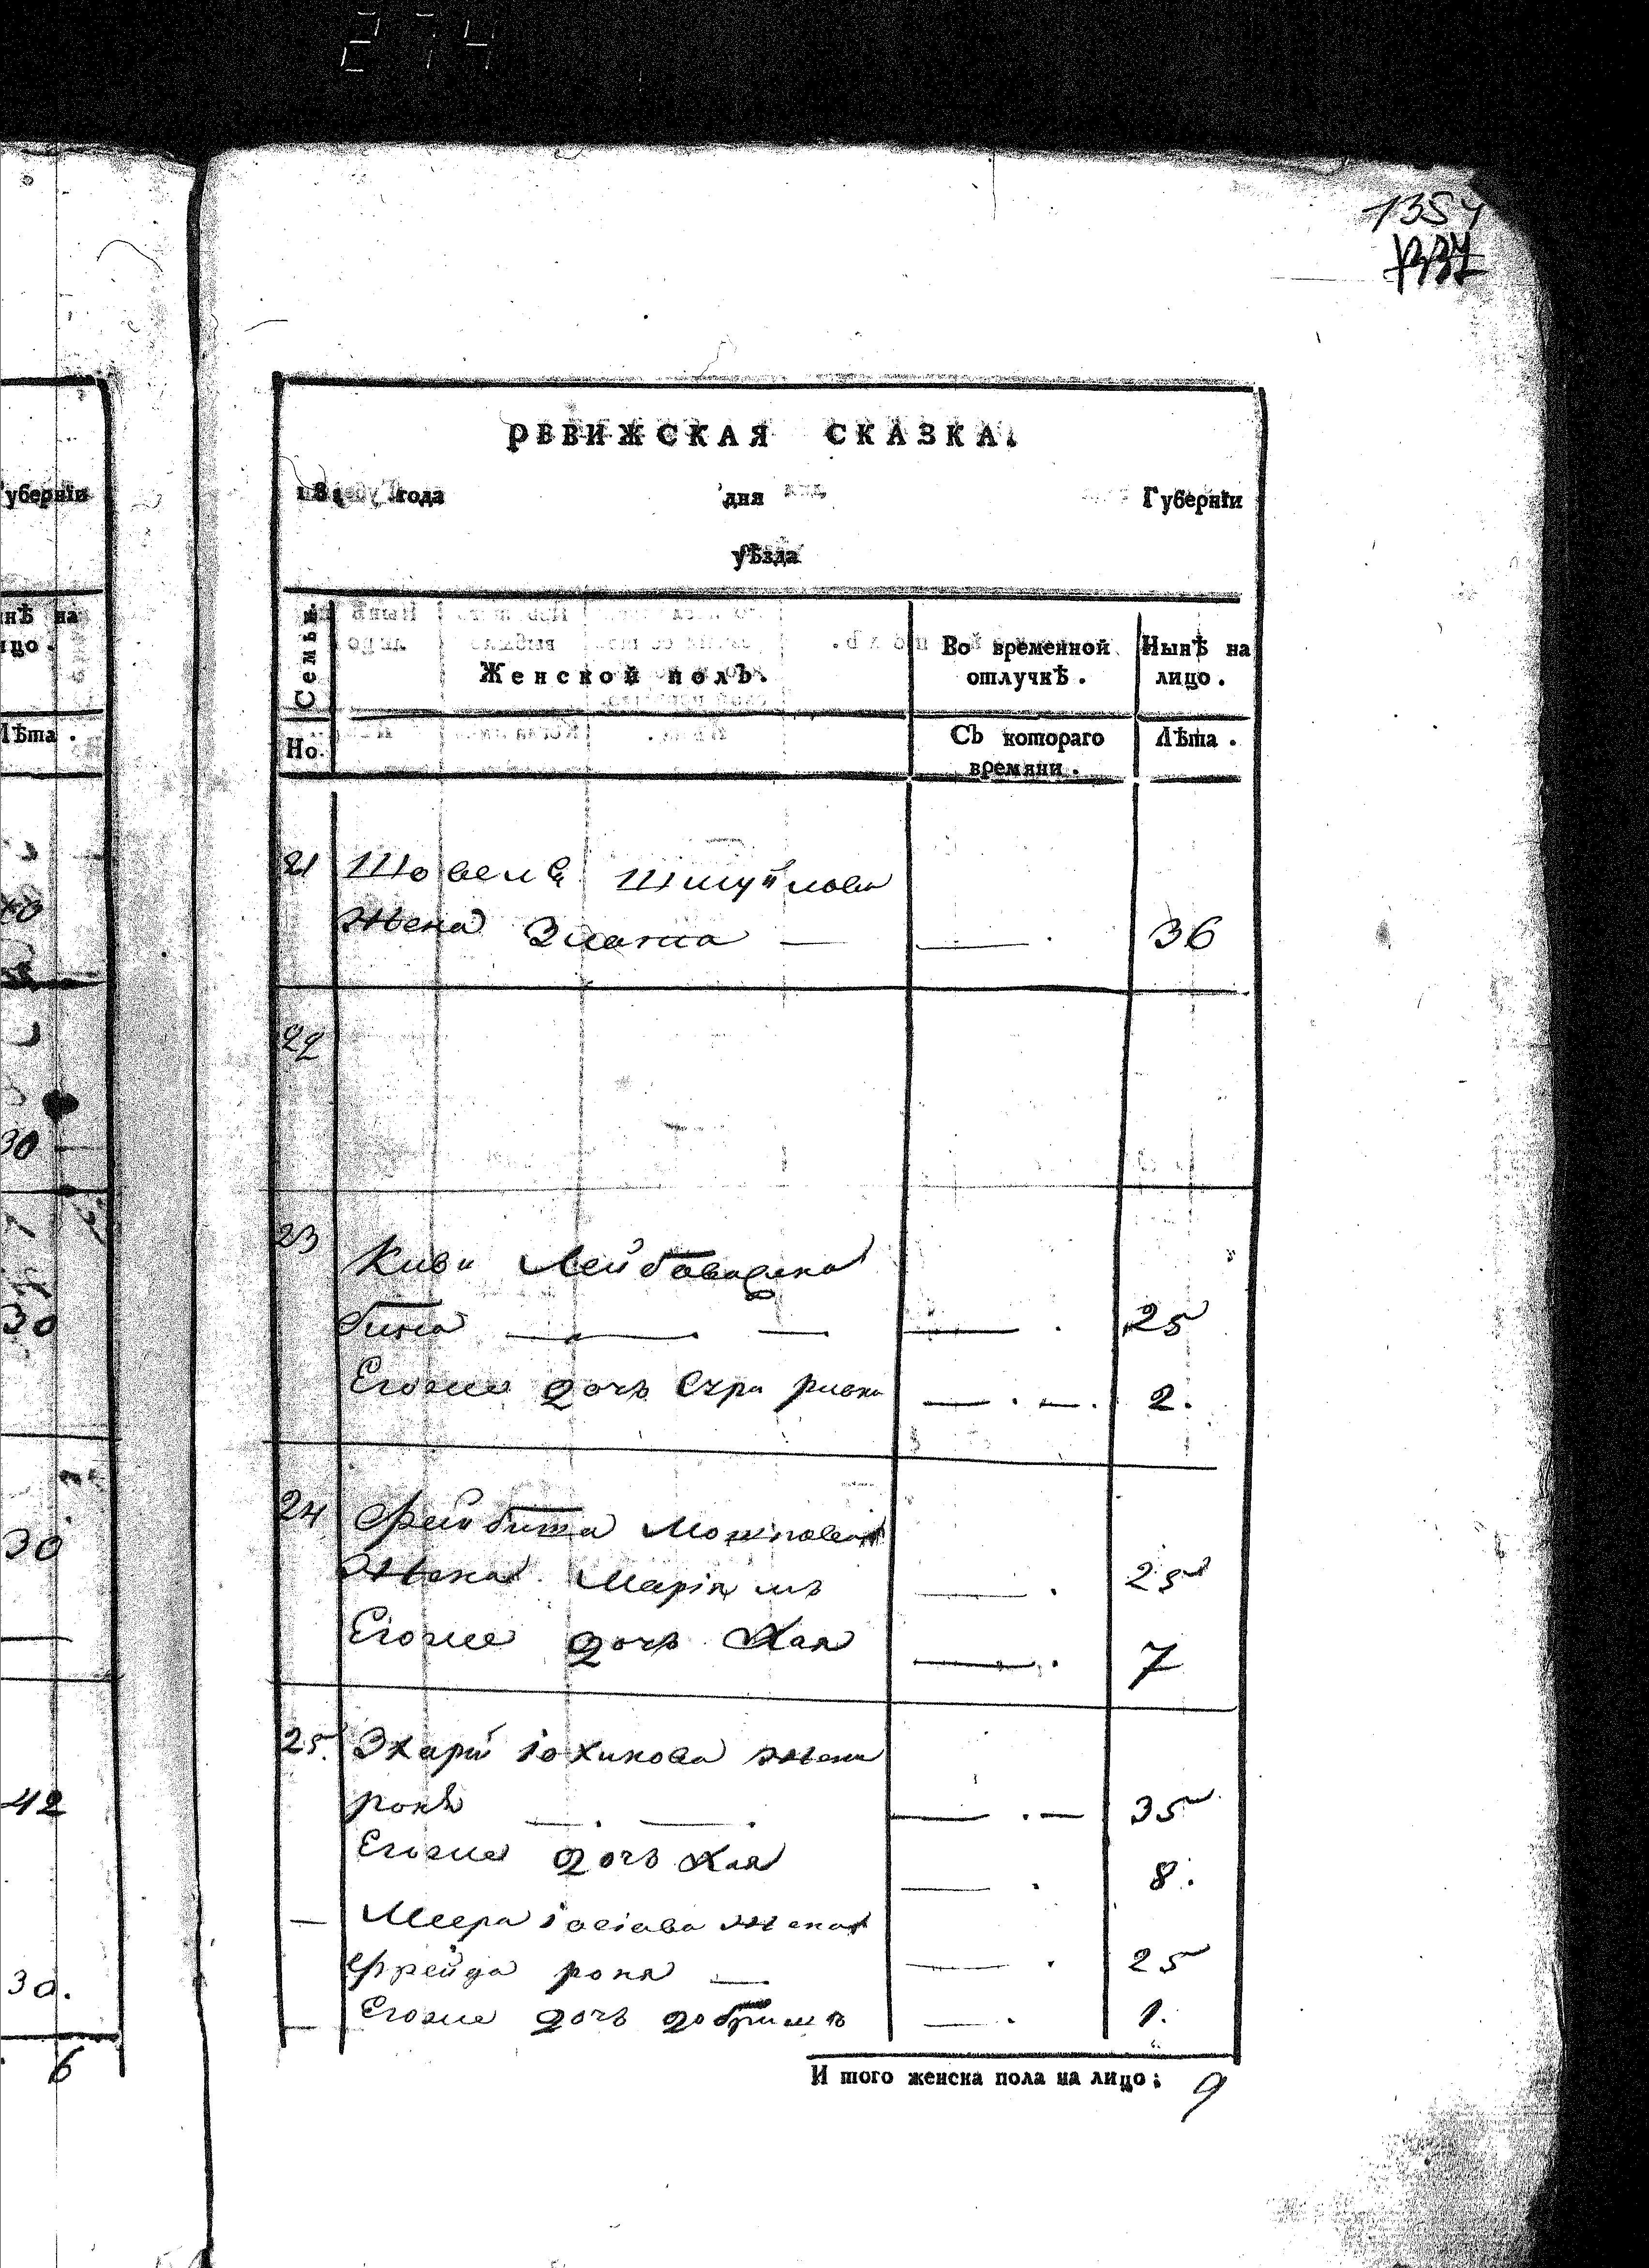 274
1354
РЕВИЖСКАЯ СКАЗКА.
181 года дня Губерніи
уѣзда
Семьи. Женской полъ. Во временной отлучкѣ. Нынѣ на лицо.
Но. Съ котораго времяни. Лѣта.
21 Шовеля Шмуйлова
жена Злата — — . 36
22
23 Киви Лейбова жена
— . — — . 25
Егоже дочь Сура ривка — . — . 2.
24 Фейбиша Мошковая
жена Маріямъ — . 25
Егоже дочь Хая — . 7
25. іохимова жена
роня — . — . — . — 35
Егоже дочь Хая — . 8.
— Меера іосіова жена
Фрейда роня — — . 25
— Егоже дочь добришъ — . 1.
И того женска пола на лицо: 9
уберніи
нѣ на
цо.
Лѣта.
30
30
30
42
30.
6